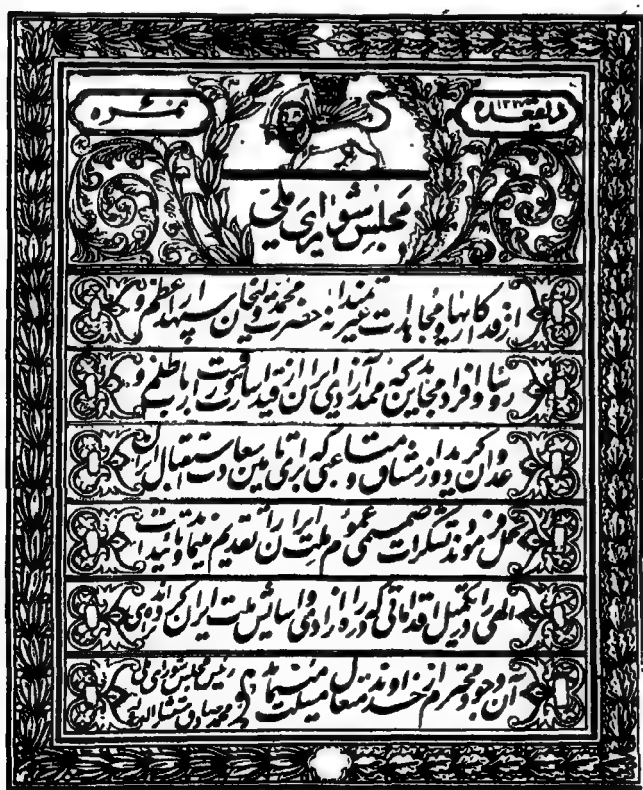 ذیقعده ۱۳۲۷
نمره
مجلس شورای ملی
از فداکاریها و مجاهدات غیرتمندانه حضرت محمد ولیخان سپهدار اعظم و
رؤسا و افراد مجاهدین که ممد آزادی ایران از قید اسارت و رقیت ارباب ظلم و
عدوان گردید و از مشاق و متاعبی که برای تامین سعادت استقبال ایران
تحمل فرمودند تشکرات صمیمی عموم ملت ایران را تقدیم مینماید و تائیدات
الهی را در تکمیل اقداماتی که در راه آزادی و آسایش ملت ایران کرده اند برای
آن وجود محترم از خداوند متعال مسئلت مینماید
رئیس مجلس شورای ملی
محمد صادق مستشار الدوله